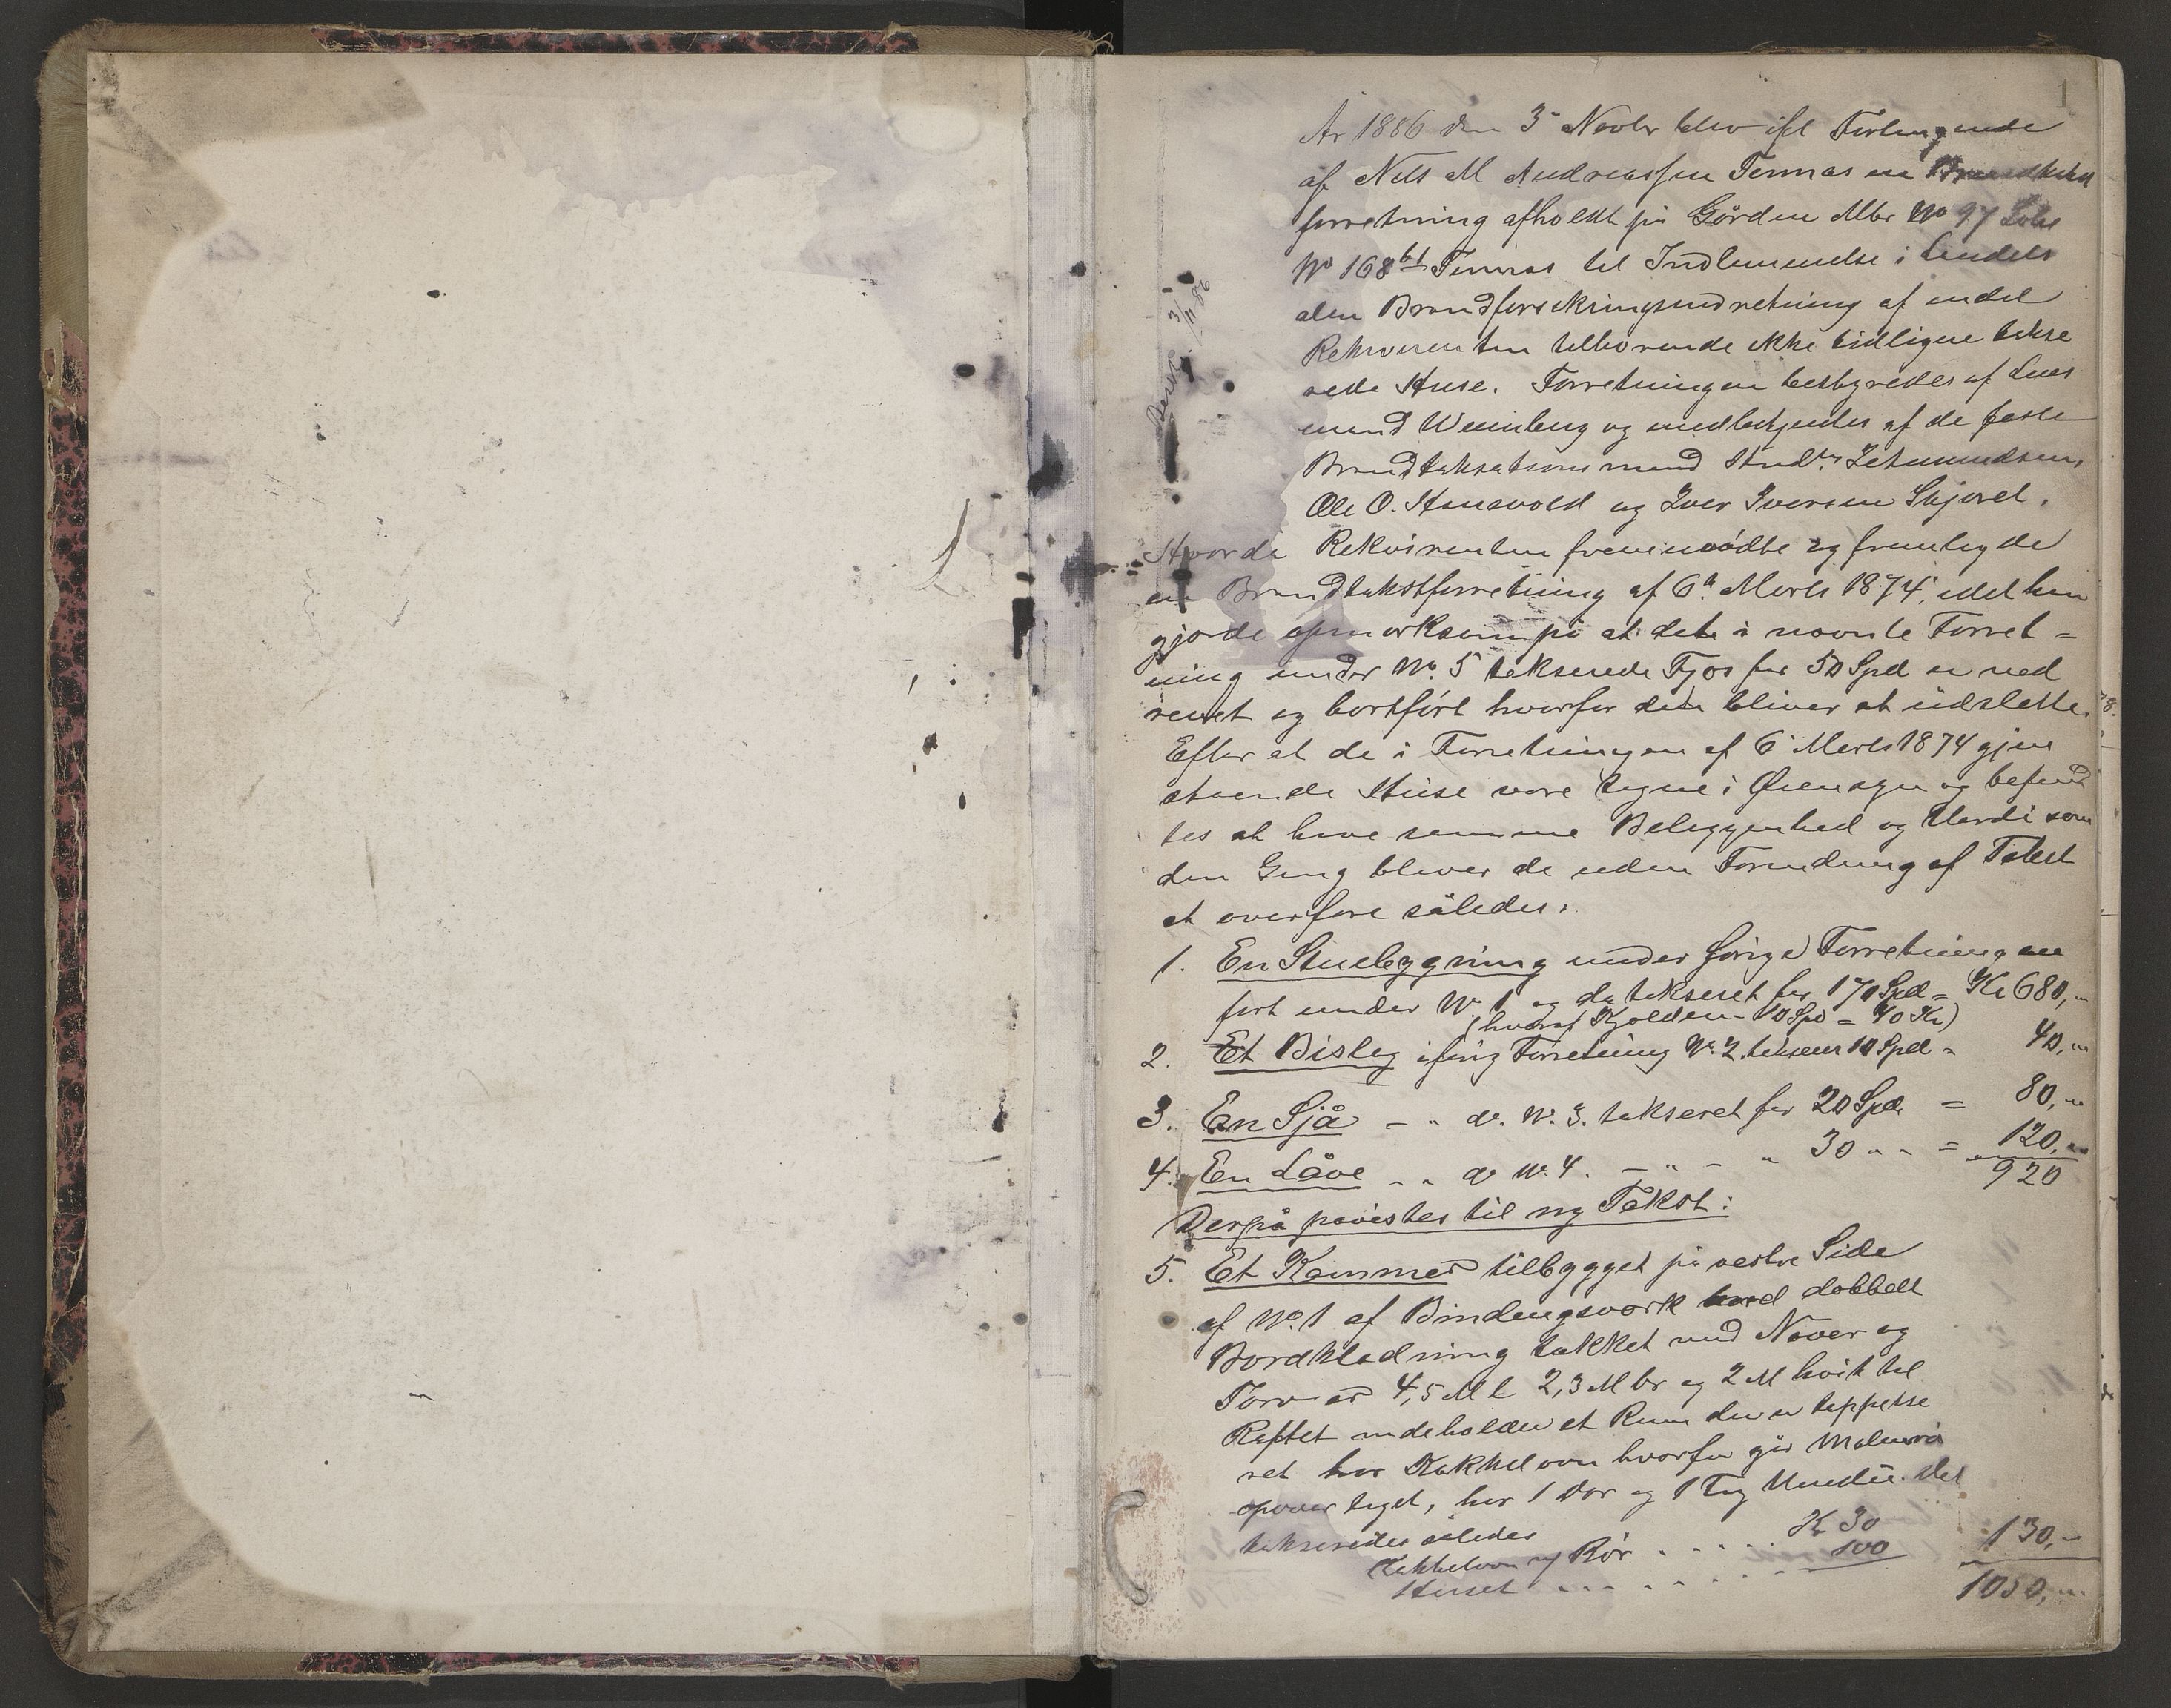 1
År 1886 den 3 Novbr blev ifl Forlangende
af Nils M Andreassen Temnas en Brandtakst
forretning afholdt på Gården Mtr No 97 Løbe
No 168 b1 Temnas til Indlemmelse i Landets
alm Brandforsikringsindretning af endel
Rekvirenten tilhørende ikke tidligere takse
rede Huse. Forretningen bestyredes af Lens
mand Weinberg og medbetjentes af de faste
Brandtaksationsmænd Zetmundsen,
Ole O. Hanevold og Iver Iversen Skjøvel.
Hvorda Rekvirenten fremmødte og fremlagde
en Brandtakstforretning af 6 Marts 1874, idet han
gjorde opmærksom på at det i nævnte Forret=
ning under No. 5 takserede Fjøs for 50 Spd er ned
revet og bortført hvorfor dette bliver at udslette.
Efter at de i Forretningen af 6 Marts 1874 gjen
stående Huse vare tagne i Øiensyn og befund
tes at have samme Beliggenhed og Værdi som
den Gang bliver de uden Forandring af Takst
at overføre således:
1. En Stuebygning under forrige Forretning an
ført under No. 1 og da takseret for 170 Spd = Kr 680,"
(hvoraf Kjelderen 10 Spd = 40 Kr)
2. Et Bislag i forrig Forretning No. 2 takseret 10 Spd = 40,"
3. En Sjå - " do. No. 3. takseret for 20 Spd. = 80,"
4. En Låve - " do No. 4. - " - " 30 " " = 120,"
920
Derpå påvistes til ny Takst:
5. Et Kammer tilbygget på vestre Side
af No. 1 af Bindingsværk med dobbelt
Bordklædning takket med Næver og
Torv er 4,5 M l 2,3 M br og 2 M høit til
Raftet indeholder et Rum der er tappetse
ret har Kakkelovn hvorfra går Malmrør
opover taget, har 1 Dør og 1 Fag Vindu. Det
takseredes således
Kakkelovn og Rør . . . . . Kr 30
Huset . . . . . . . 100 130,"
1050,"